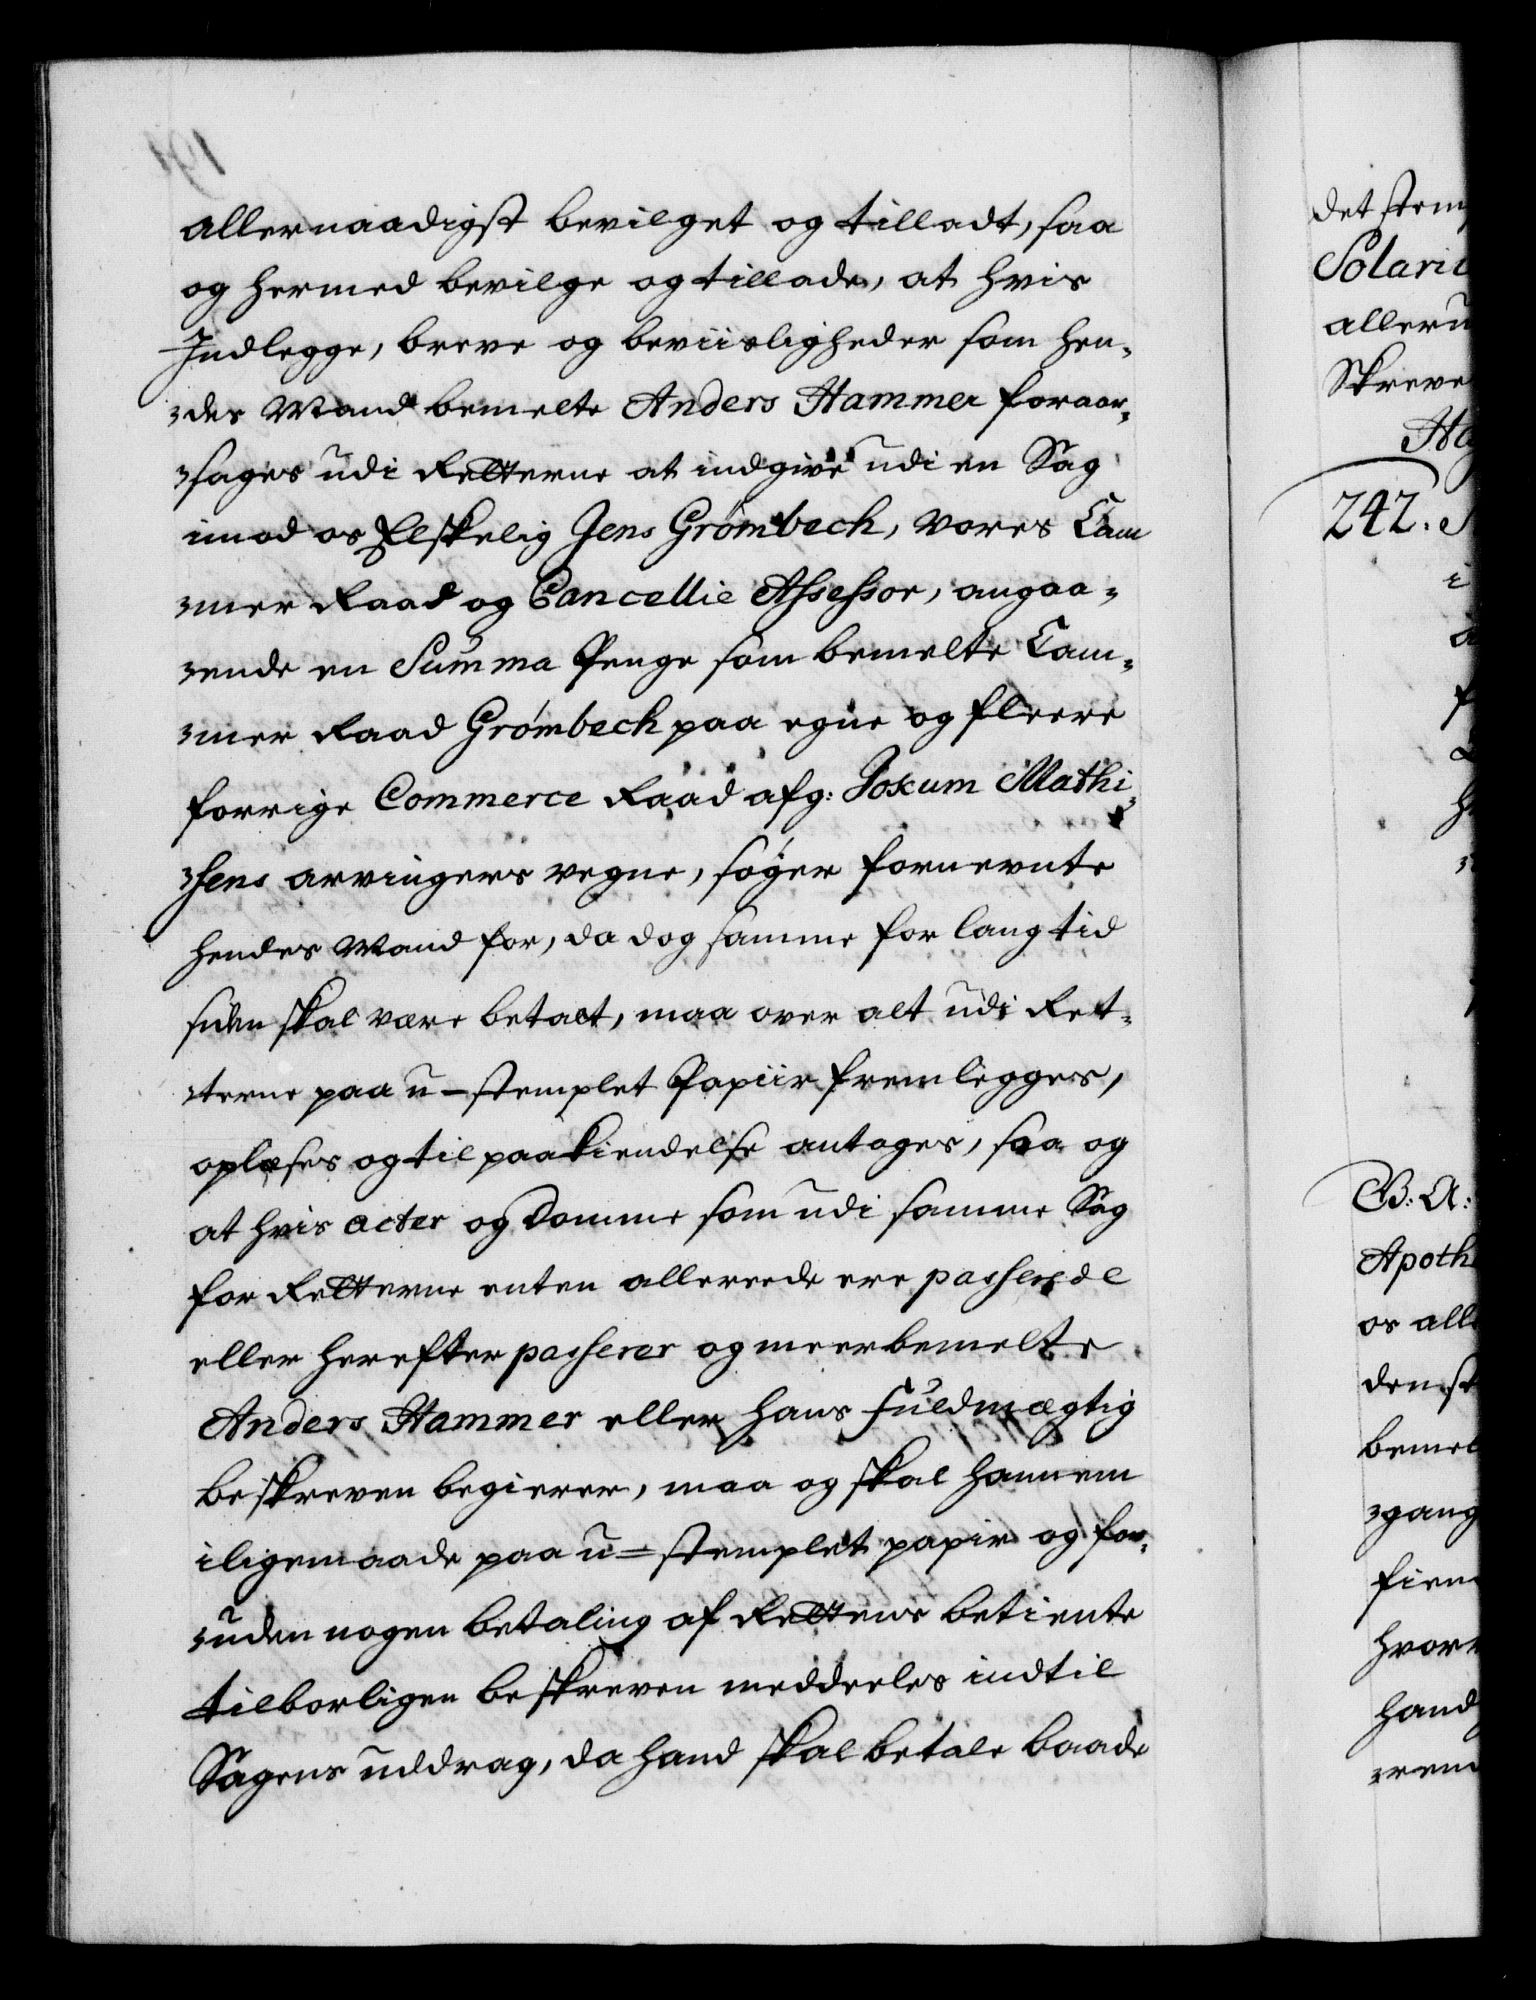 allernaadigst bevilget og tilladt, saa
og hermed bevilge og tillade, at hvis
Indlegge, breve og beviisligheder som hen-
-des Mand bemelte Anders Hammer foraar-
-sages udi Retterne at indgive udi en Sag
imod os Elskelig Jens Grømbech, vores Cam
-mer Raad og Cancellie Assessor, angaa-
-ende en Summa Penge som bemelte Cam-
-mer Raad Grømbech paa egne og fleere
forrige Commerce Raad afg: Jokum Mathi-
-sens arvingers vegne, søger fornevnte
hendes Mand for, da dog samme for lang tid
siden skal være betalt, maa over alt udi Ret-
-terne paa u-stemplet Papiir fremlegges,
oplæses og til paakiendelse antages, saa og
at hvis acter og Domme som udi samme Sag
for Retterne enten allereede ere passerede
eller herefter passerer og meerbemelte
Anders Hammer eller hans fuldmægtig
beskreven begierer, maa og skal hannem
iligemaade paa u-stemplet papir og for-
-uden nogen betaling af Rettens betiente
tilbørligen beskreven meddeeles indtil
Sagens uddrag, da hand skal betale baade
det stem
alleru
Skreve
242.
B: A:
Apoth
os alle
bemel
-gang
hvor
hand